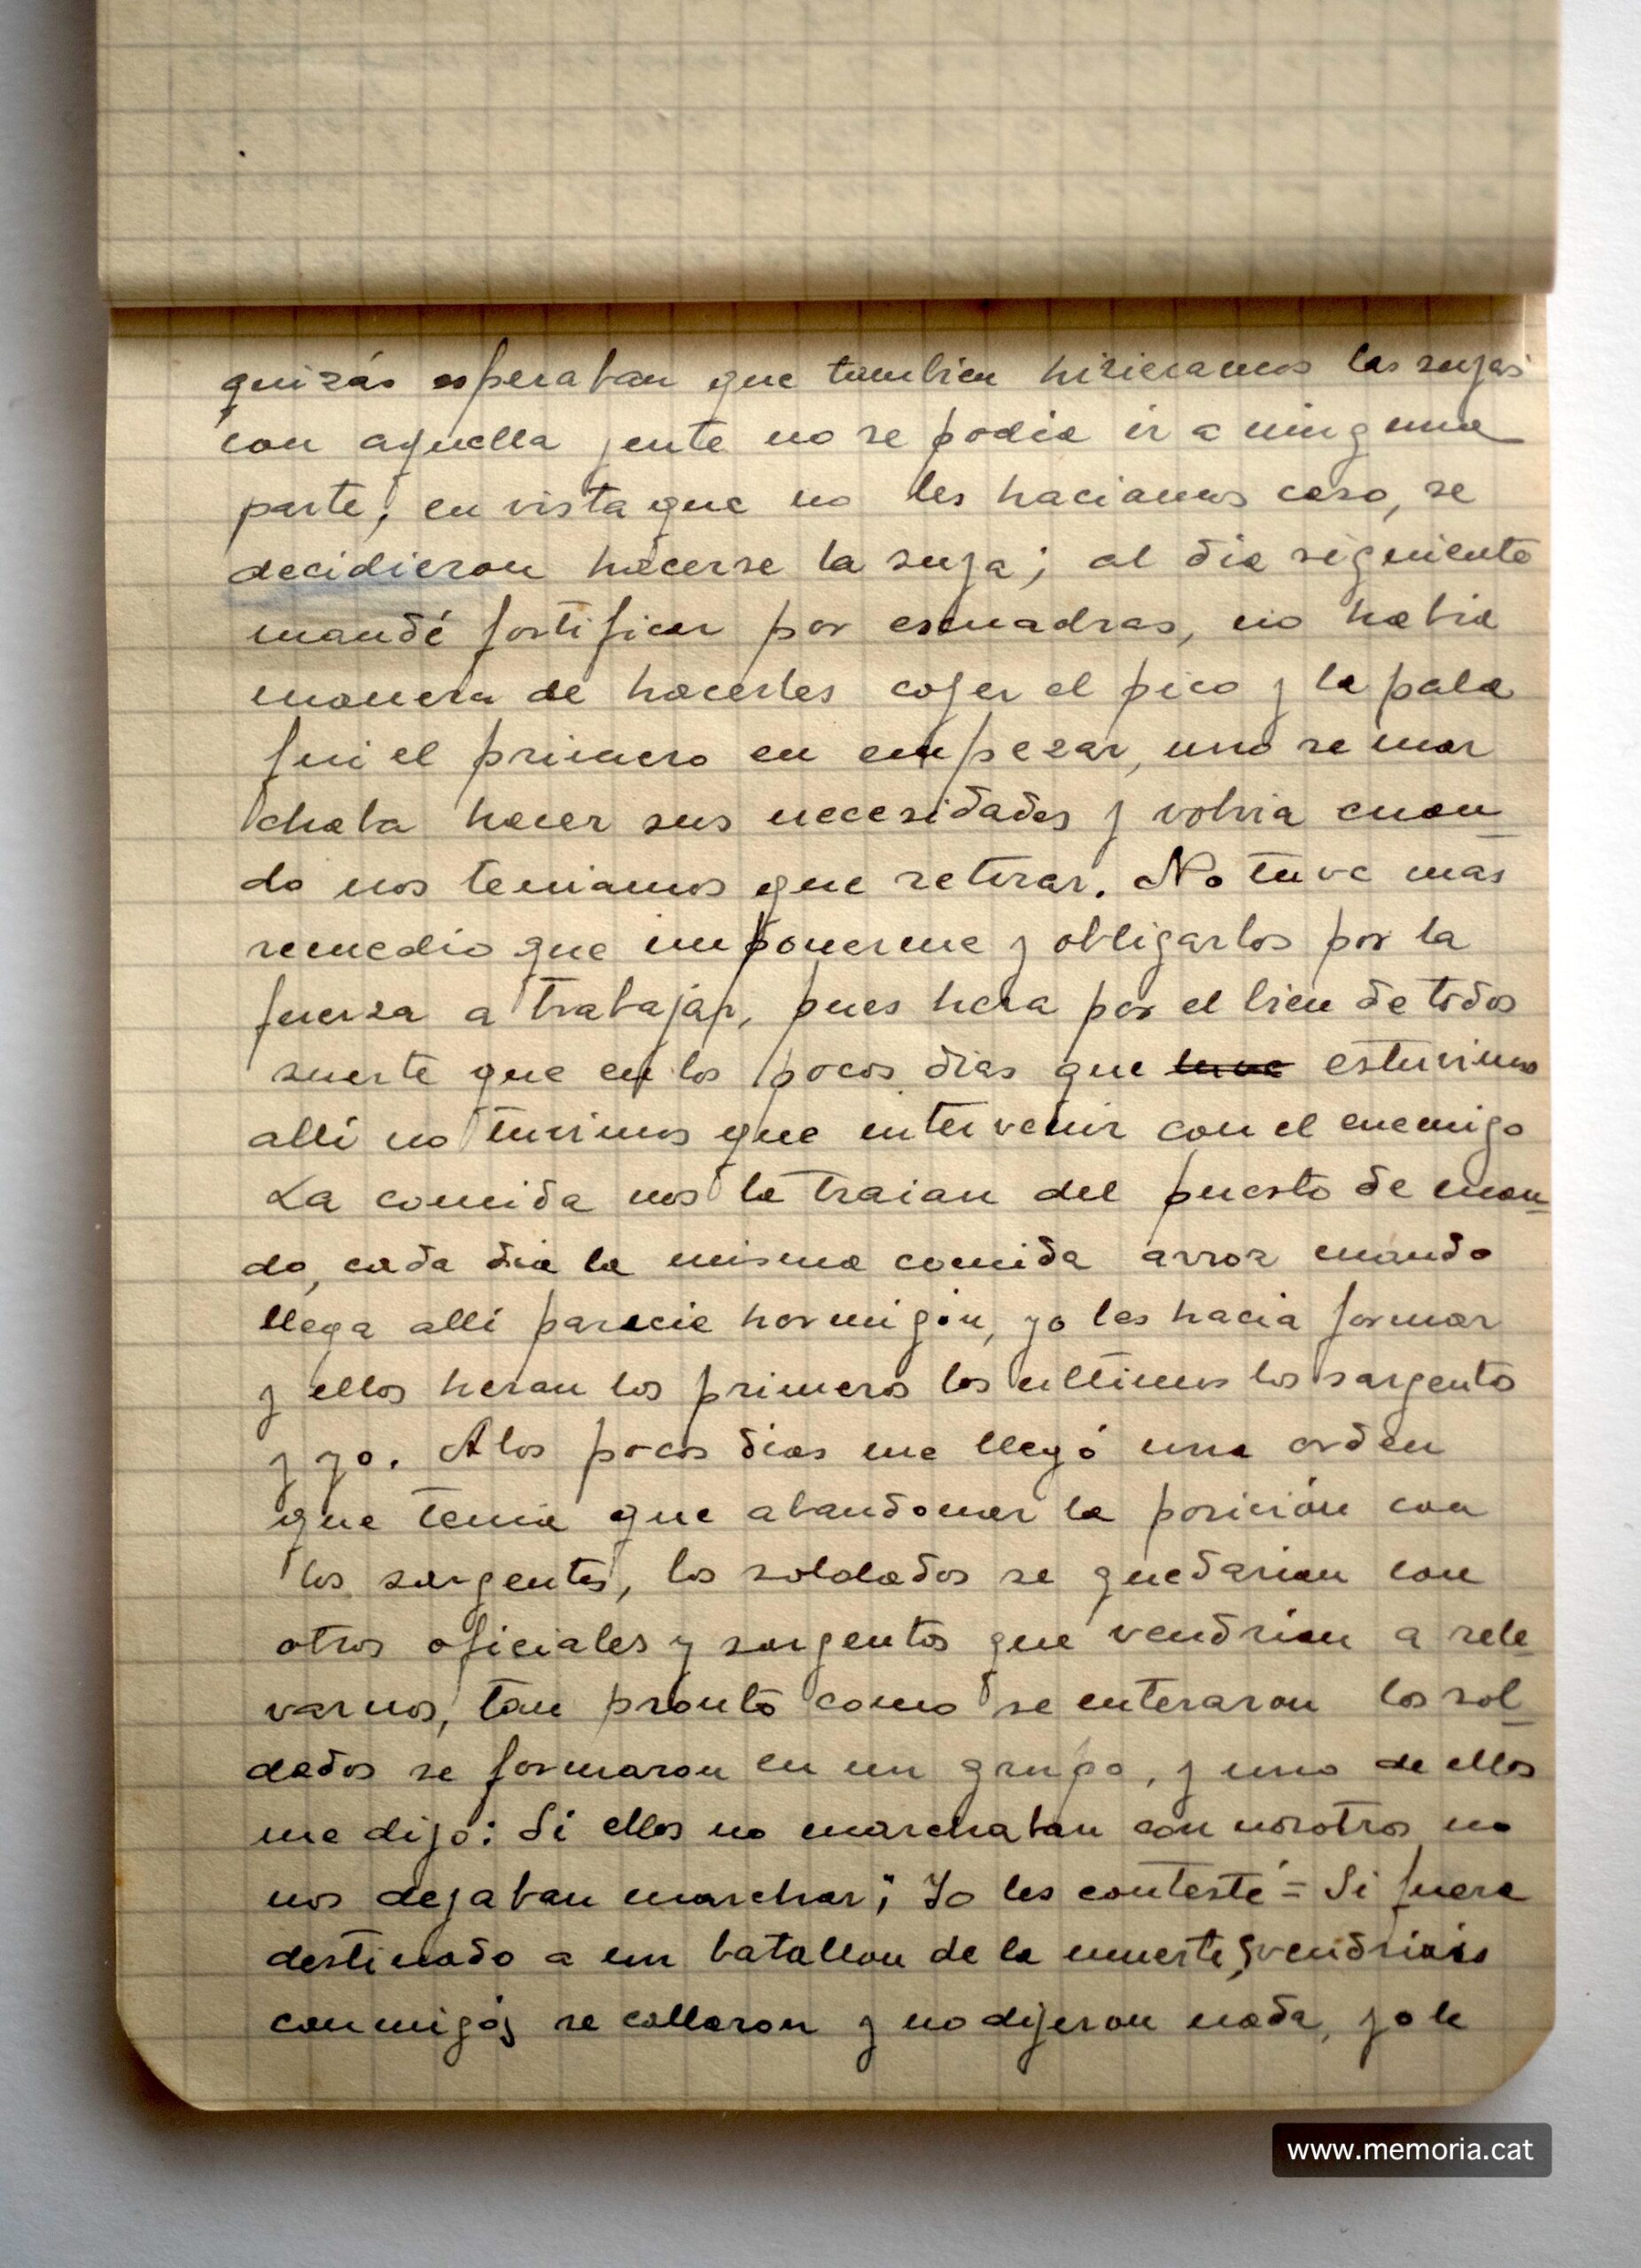 quizás esperaban que tambien hizieramos las suyas
con aquella jente no se podia ir a ninguna
parte, en vista que no les haciamos caso, se
decidieron hacerse la suya; al dia siguiente
mandé fortificar por escuadras, no habia
manera de hacerles cojer el pico y la pala
fui el primero en empezar, uno se mar
chaba hacer sus necesidades y volvia cuan
do nos teniamos que retirar. No tuve mas
remedio que imponerme y obligarlos por la
fuerza a trabajar, pues hera por el bien de todos
suerte que en los pocos dias que estuvimos
allí no tuvimos que intervenir con el enemigo
La comida nos la traian del puesto de man
do, cada dia la misma comida arroz cuando
llega allí parecia hormigón, yo les hacia formar
y ellos heran los primeros los ultimos los sargentos
y yo. A los pocos dias me llegó una orden
que tenia que abandonar la posición con
los sargentos, los soldados se quedarian con
otros oficiales y sargentos que vendrian a rele
varnos, tan pronto como se enteraron los sol
dados se formaron en un grupo, y uno de ellos
me dijo: Si ellos no marchaban con nosotros no
nos dejaban marchar; Yo les contesté = Si fuera
destinado a un batallon de la muerte ¿vendriais
conmigo? se callaron y no dijeron nada, yo le
www.memoria.cat